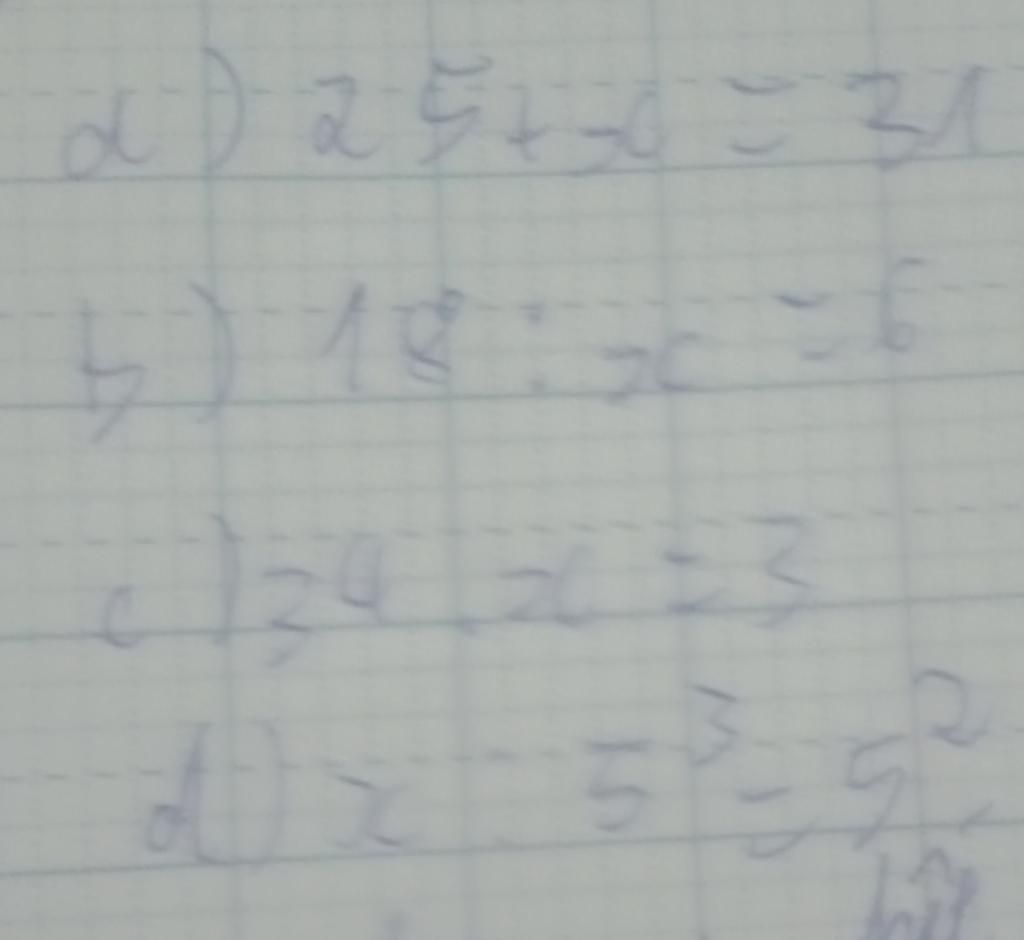 a) 25 + x = 31
b) 18 : x = 6
c) 3⁴ . x = 3
d) x . 5³ = 5²
hết